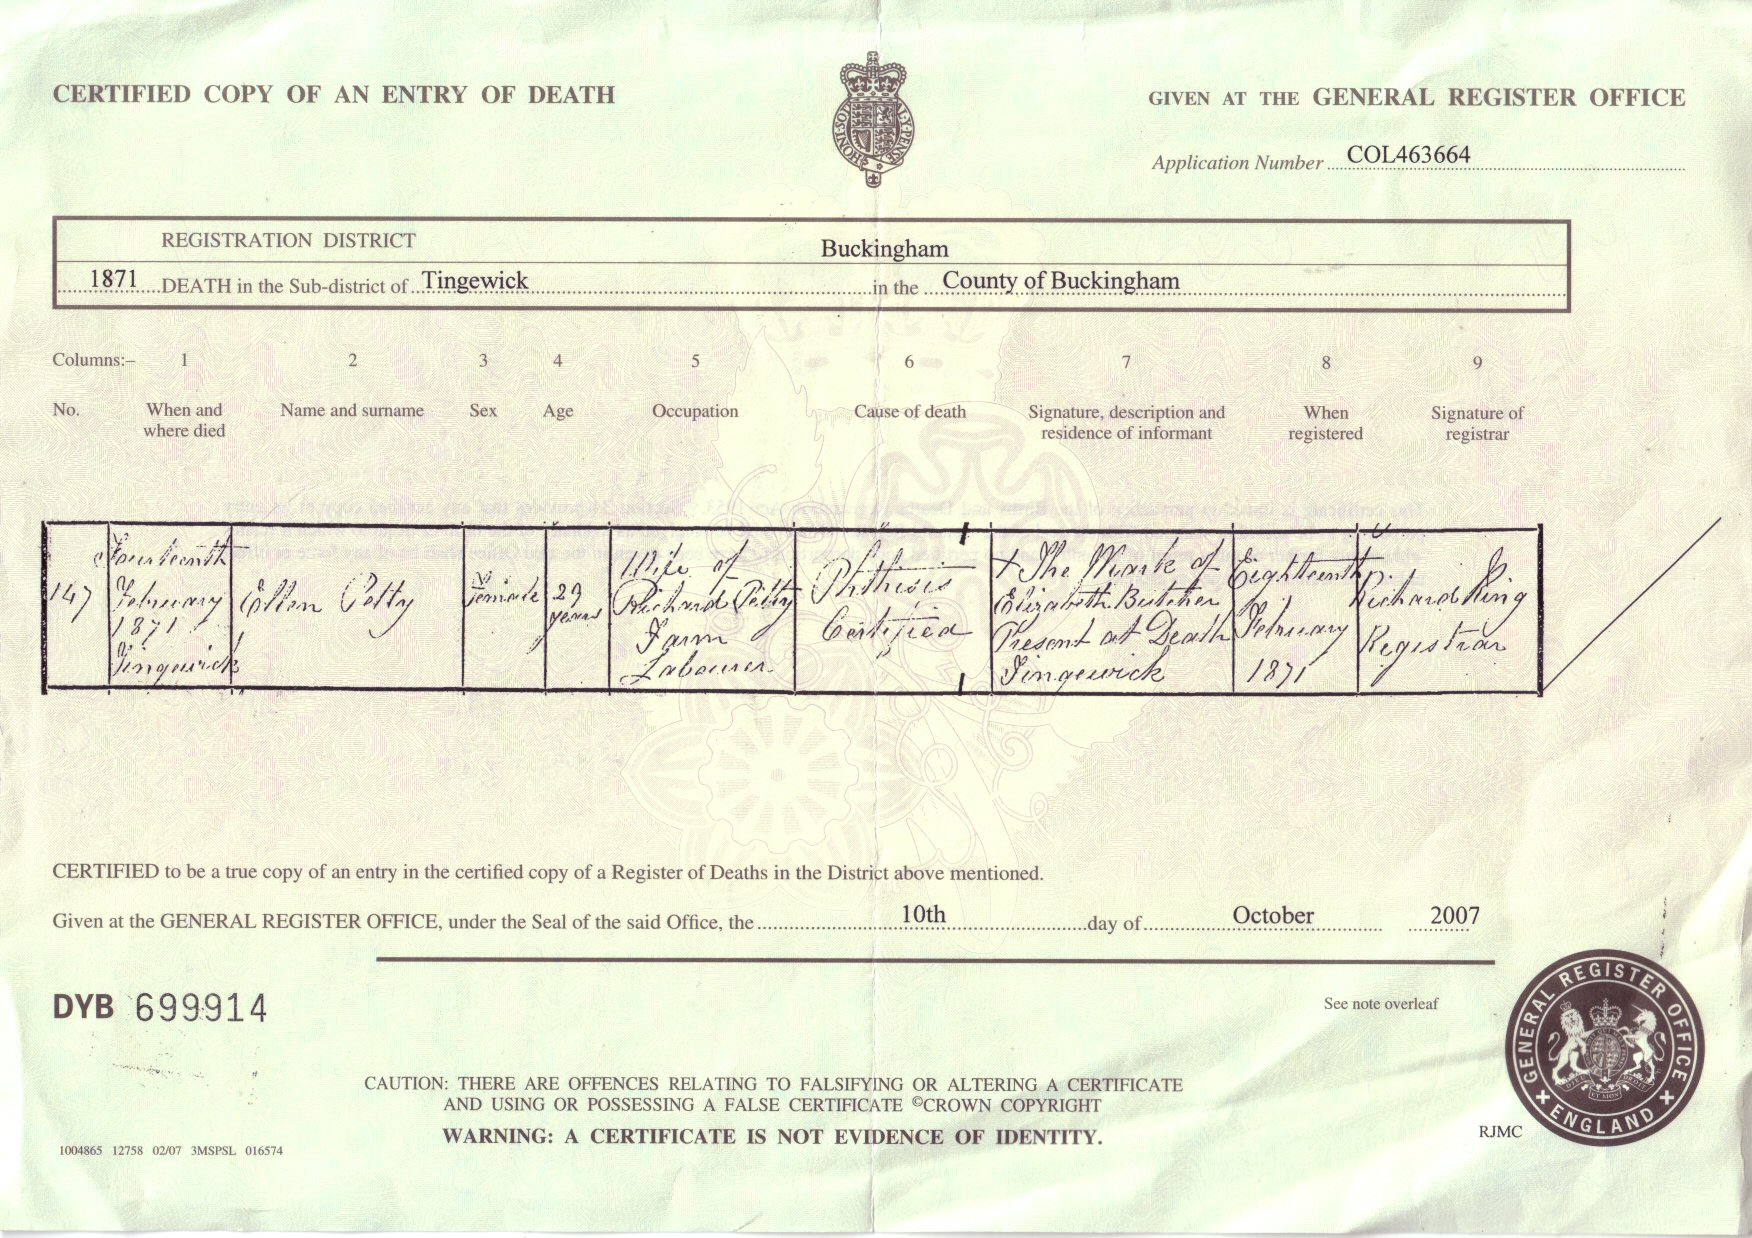 CERTIFIED COPY OF AN ENTRY OF DEATH
GIVEN AT THE GENERAL REGISTER OFFICE
HONI·SOI AL·Y·PENSE
Application Number COL463664
REGISTRATION DISTRICT Buckingham
1871 DEATH in the Sub-district of Tingewick in the County of Buckingham
Columns:– 1 2 3 4 5 6 7 8 9
No. When and where died Name and surname Sex Age Occupation Cause of death Signature, description and residence of informant When registered Signature of registrar
147
Fourteenth
February
1871
Tingewick
Ellen Petty
Female
29
years
Wife of
Richard Petty
Farm
Labourer
Phthisis
Certified
X The Mark of
Elizabeth Butcher
Present at Death
Tingewick
Eighteenth
February
1871
Richard King
Registrar
CERTIFIED to be a true copy of an entry in the certified copy of a Register of Deaths in the District above mentioned.
Given at the GENERAL REGISTER OFFICE, under the Seal of the said Office, the 10th day of October 2007
DYB 699914
See note overleaf
CAUTION: THERE ARE OFFENCES RELATING TO FALSIFYING OR ALTERING A CERTIFICATE
AND USING OR POSSESSING A FALSE CERTIFICATE ©CROWN COPYRIGHT
WARNING: A CERTIFICATE IS NOT EVIDENCE OF IDENTITY.
1004865 12758 02/07 3MSPSL 016574
RJMC
GENERAL REGISTER OFFICE
ENGLAND